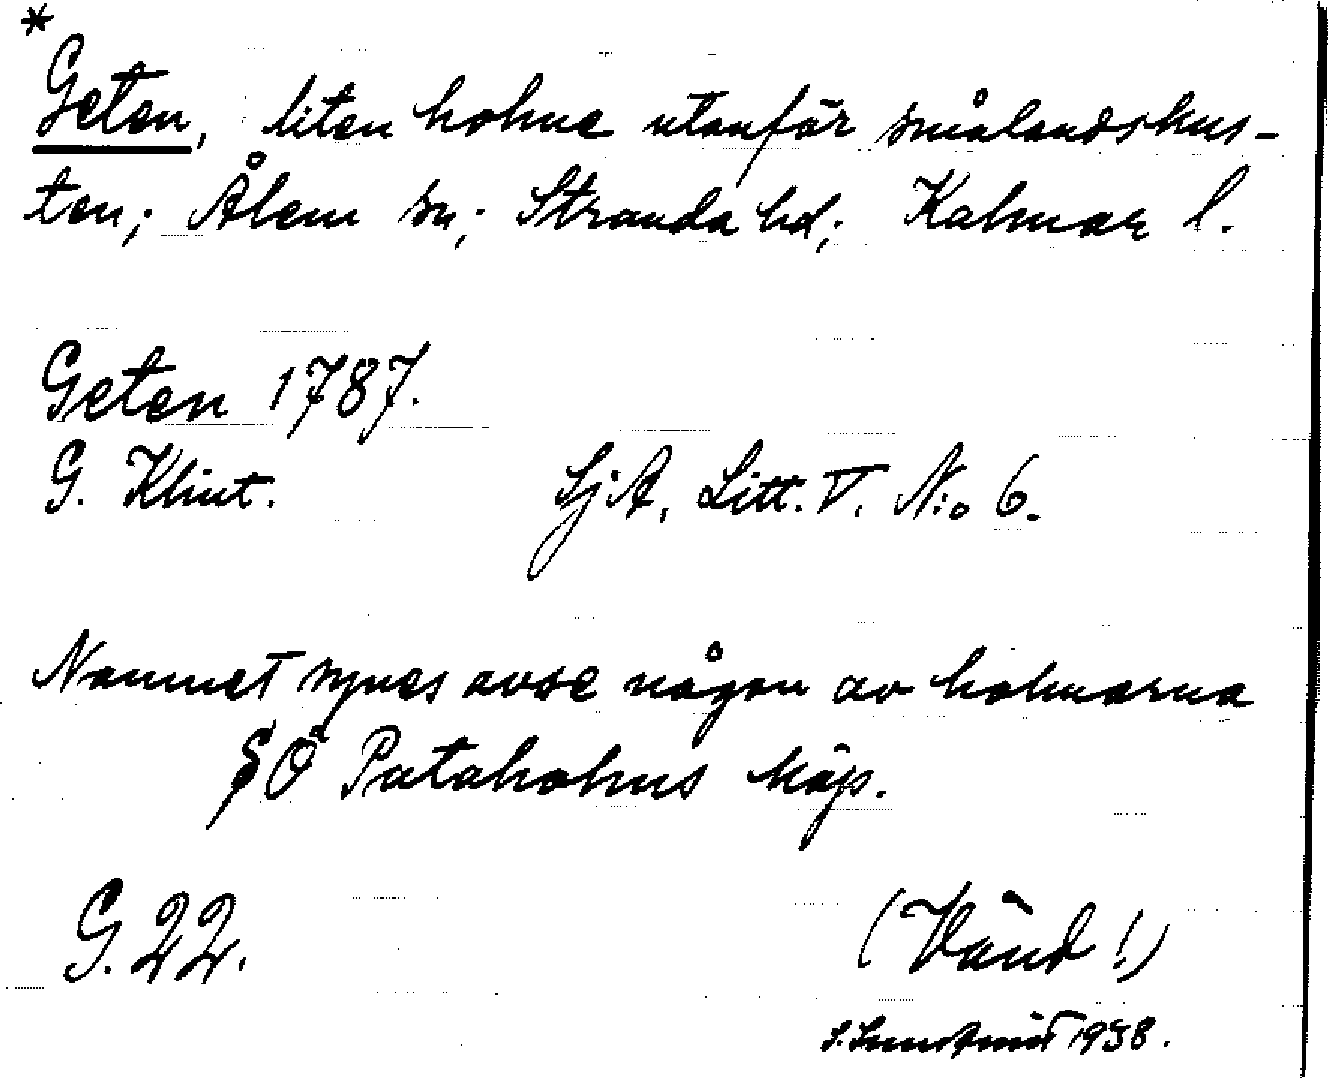 *
Geten, liten holme utanför smålandskus-
ten; Ålem sn; Stranda hd; Kalmar l.
Geten 1787.
G. Klint. SjA, Litt. V. N:o 6.
Namnet synes avse någon av holmarna
SÖ Pataholms köp.
G. 22. (Vänd!)
1938.